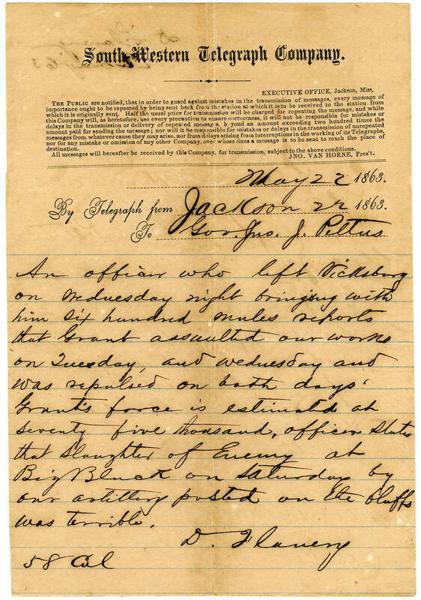 South-Western Telegraph Company.
EXECUTIVE OFFICE, Jackson, Miss.
THE PUBLIC are notified, that in order to guard against mistakes in the transmission of messages, every message of
importance ought to be repeated by being sent back from the station at which it is to be received to the station from
which it is originally sent. Half the usual price for transmission will be charged for repeating the message, and while
this Company will, as heretofore, use every precaution to ensure correctness, it will not be responsible for mistakes or
delays in the transmission or delivery of repeated messages, beyond an amount exceeding two hundred times the
amount paid for sending the message; nor will it be responsible for mistakes or delays in the transmission of unrepeated
messages from whatever cause they may arise, nor from delays arising from interruptions in the working of its Telegraphs,
nor for any mistake or omission of any other Company, over whose lines a message is to be sent to reach the place of
destination.
All messages will hereafter be received by this Company, for transmission, subject to the above conditions.
JNO. VAN HORNE, Pres't.
May 22 1863.
By Telegraph from Jackson 22 1863.
To Gov. Jno. J. Pettus
An officer who left Vicksburg
on Wednesday night bringing with
him six hundred mules reports
that Grant assaulted our works
on Tuesday, and Wednesday and
was repulsed on both days.
Grants force is estimated at
seventy five thousand, officer states
that slaughter of Enemy at
Big Black on Saturday by
our artillery posted on the bluffs
was terrible.
D. Flanery
58 Col